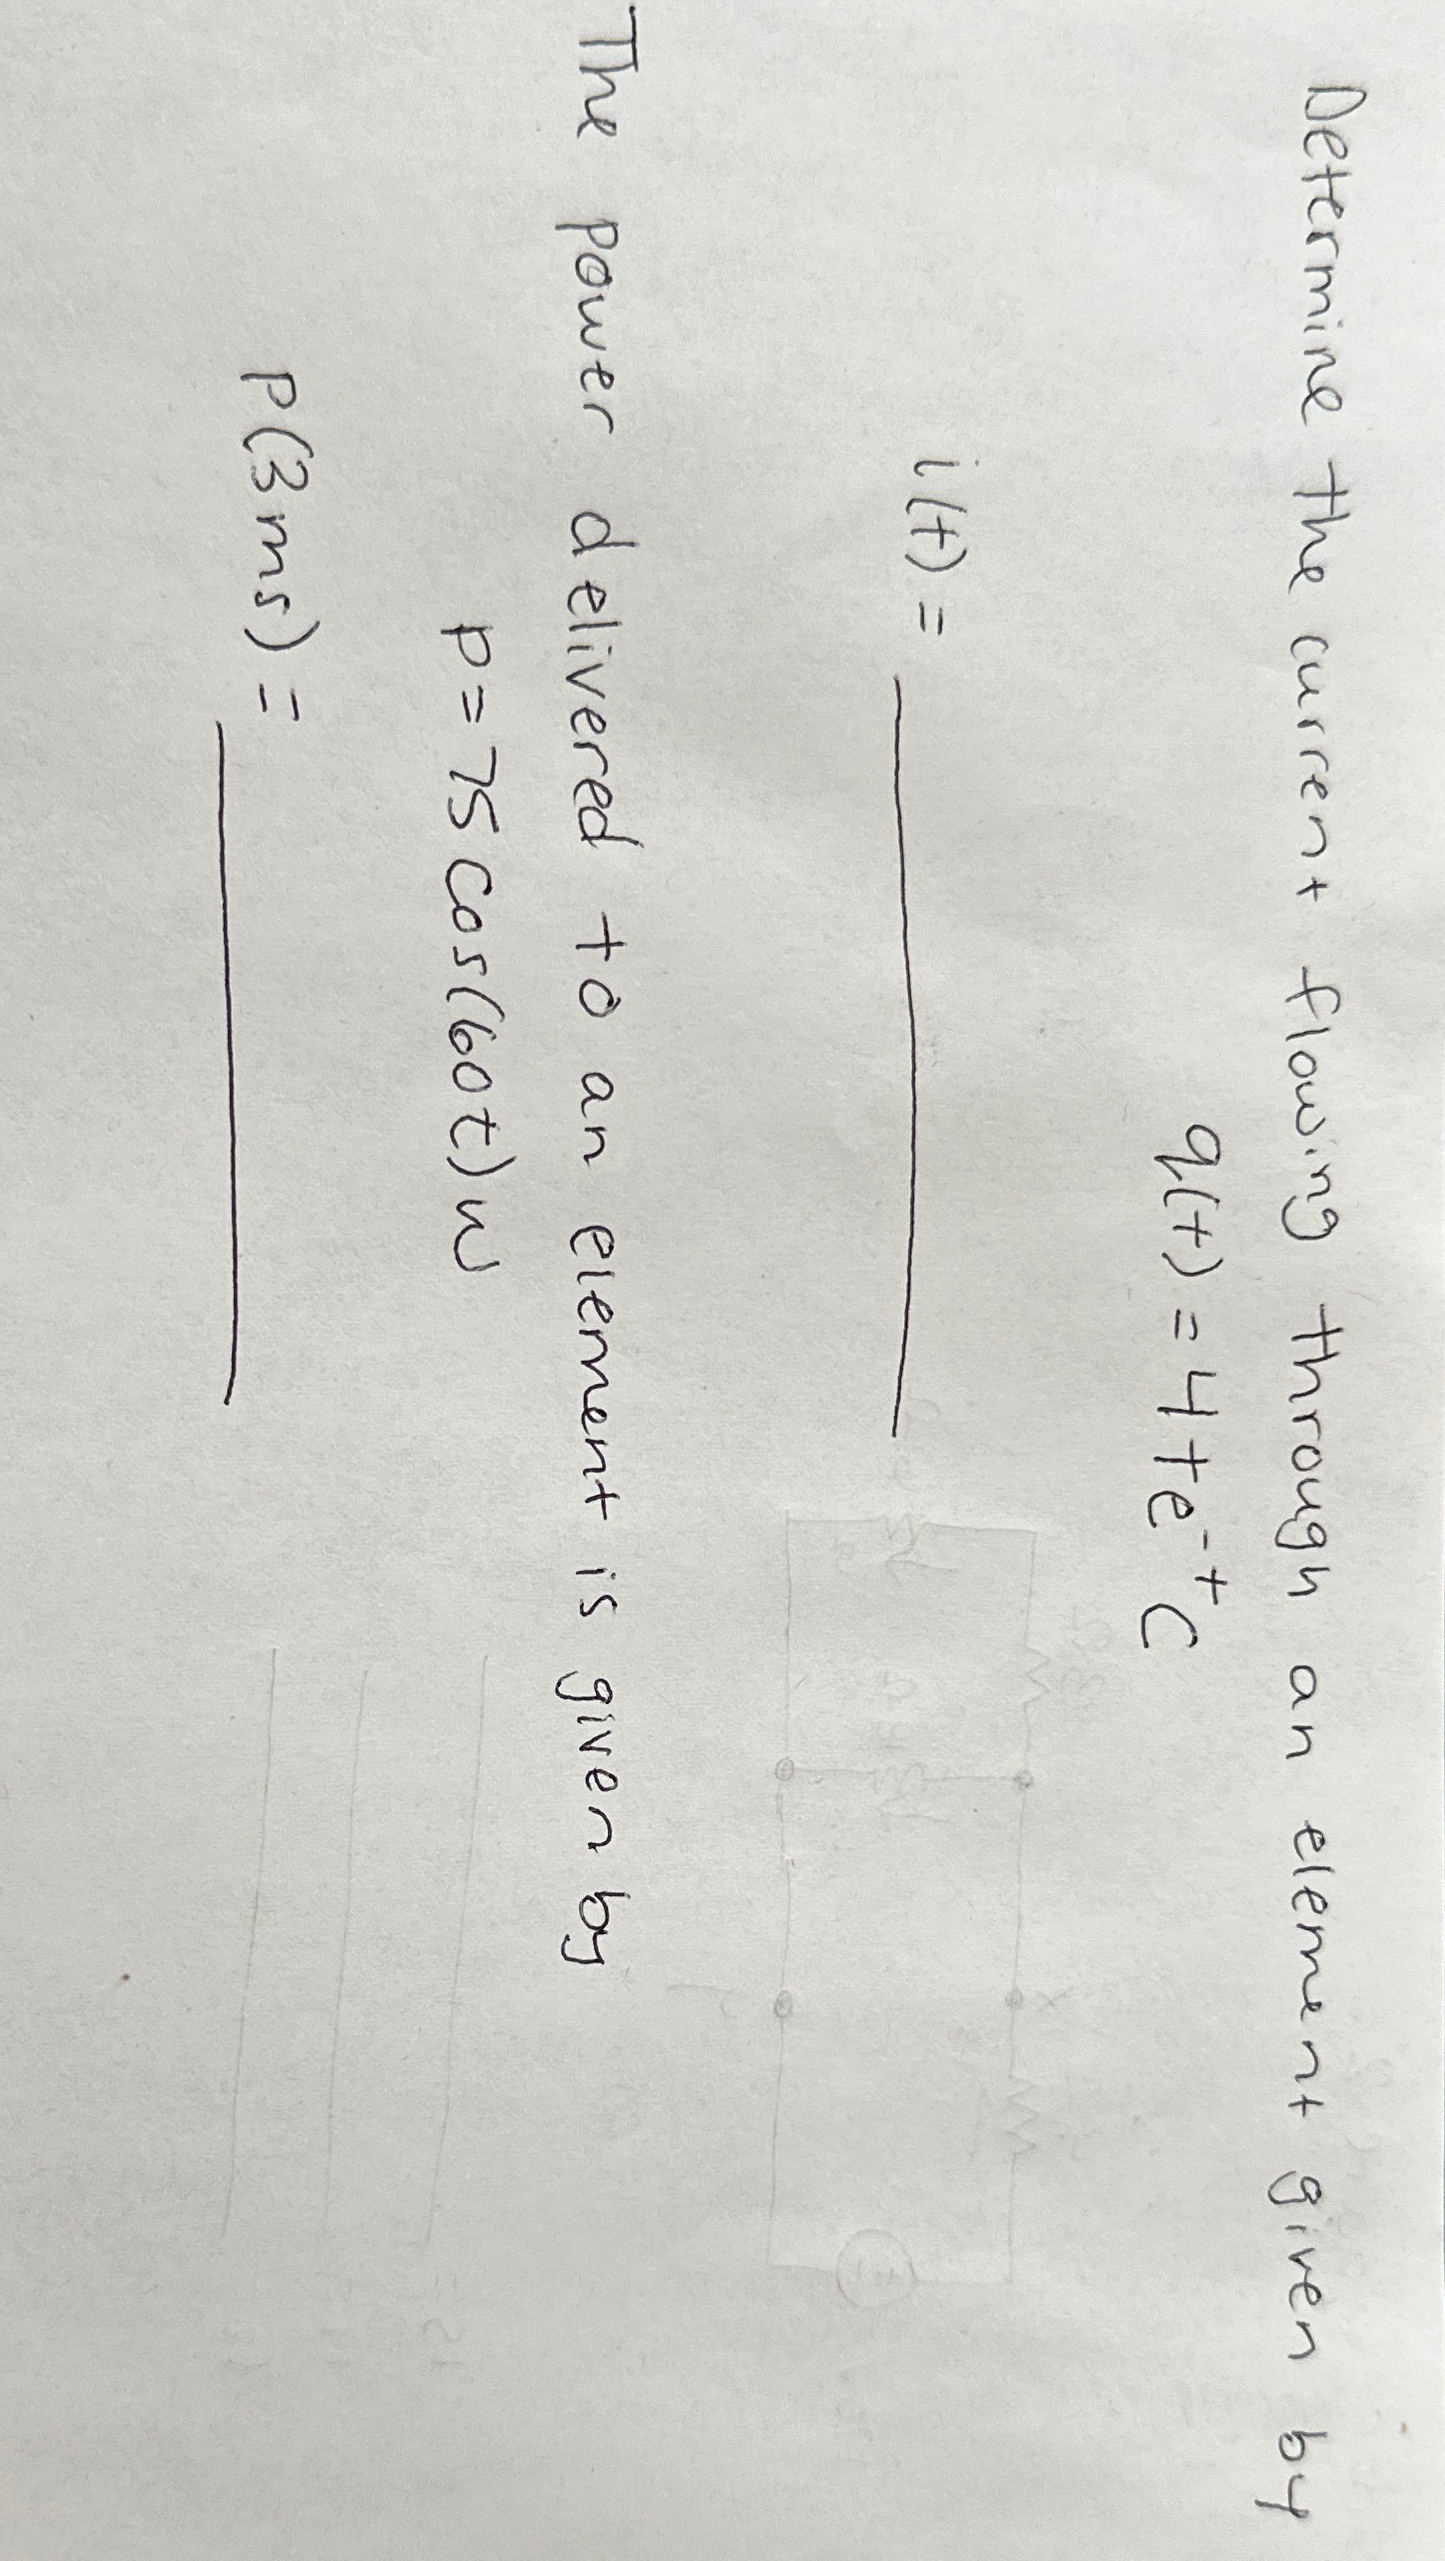 Determine the current flowing through an element given by
q(t) = 4+e⁻ᵗ C
i(t) =
The power delivered to an element is given by
P = 75 cos(60t) W
P(3ms) =